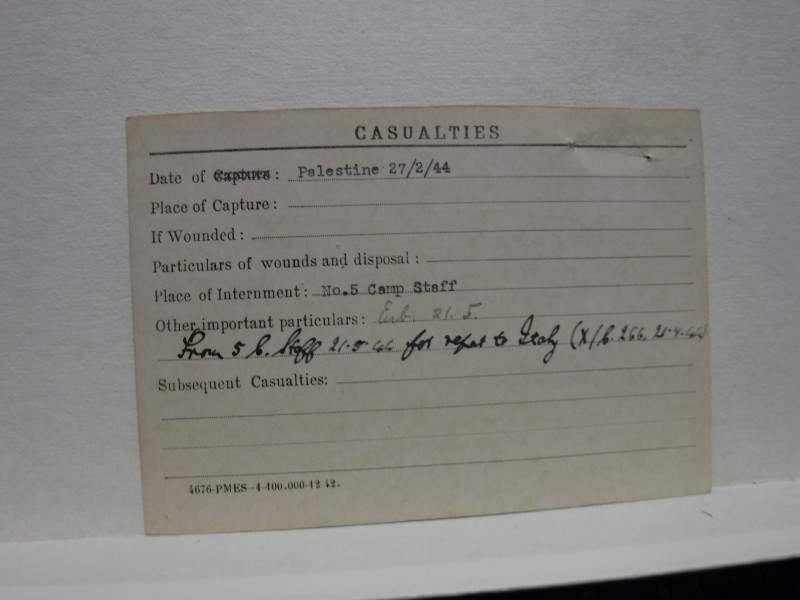 CASUALTIES
Date of Capture: Palestine 27/2/44
Place of Capture:
If Wounded:
Particulars of wounds and disposal:
Place of Internment: No.5 Camp Staff
Other important particulars: Emb. 21. 5.
From 5 C. Staff 21·5·46 for repat to Italy (X/6.266, 21·4·46)
Subsequent Casualties:
4676-PMES-1-100.000-12-42.